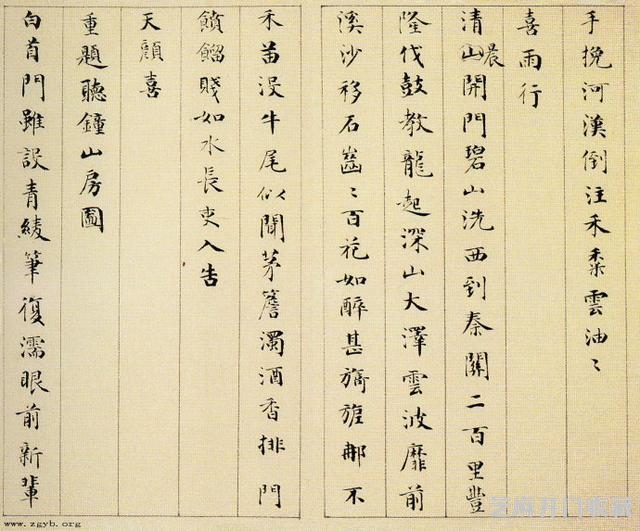 手挽河漢倒注禾黍雲油〻
喜雨行
清山晨開門碧山洗西到秦關二百里豐
隆伐鼓教龍起深山大澤雲波靡前
溪沙移石齒〻百花如醉甚旖旎那不
禾苗沒牛尾似聞茅簷濁酒香排門
饙餾賤如水長吏入告
天顏喜
重題聽鐘山房圖
白首門雖設青綾筆復濡眼前新輩
www.zgyb.org